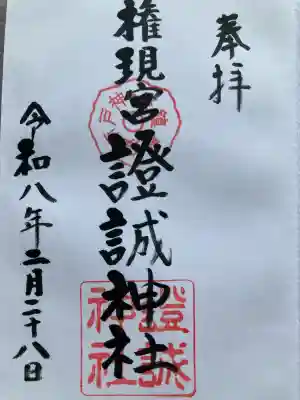 奉拝
権現宮證誠神社
令和八年二月二十八日
證誠
神社